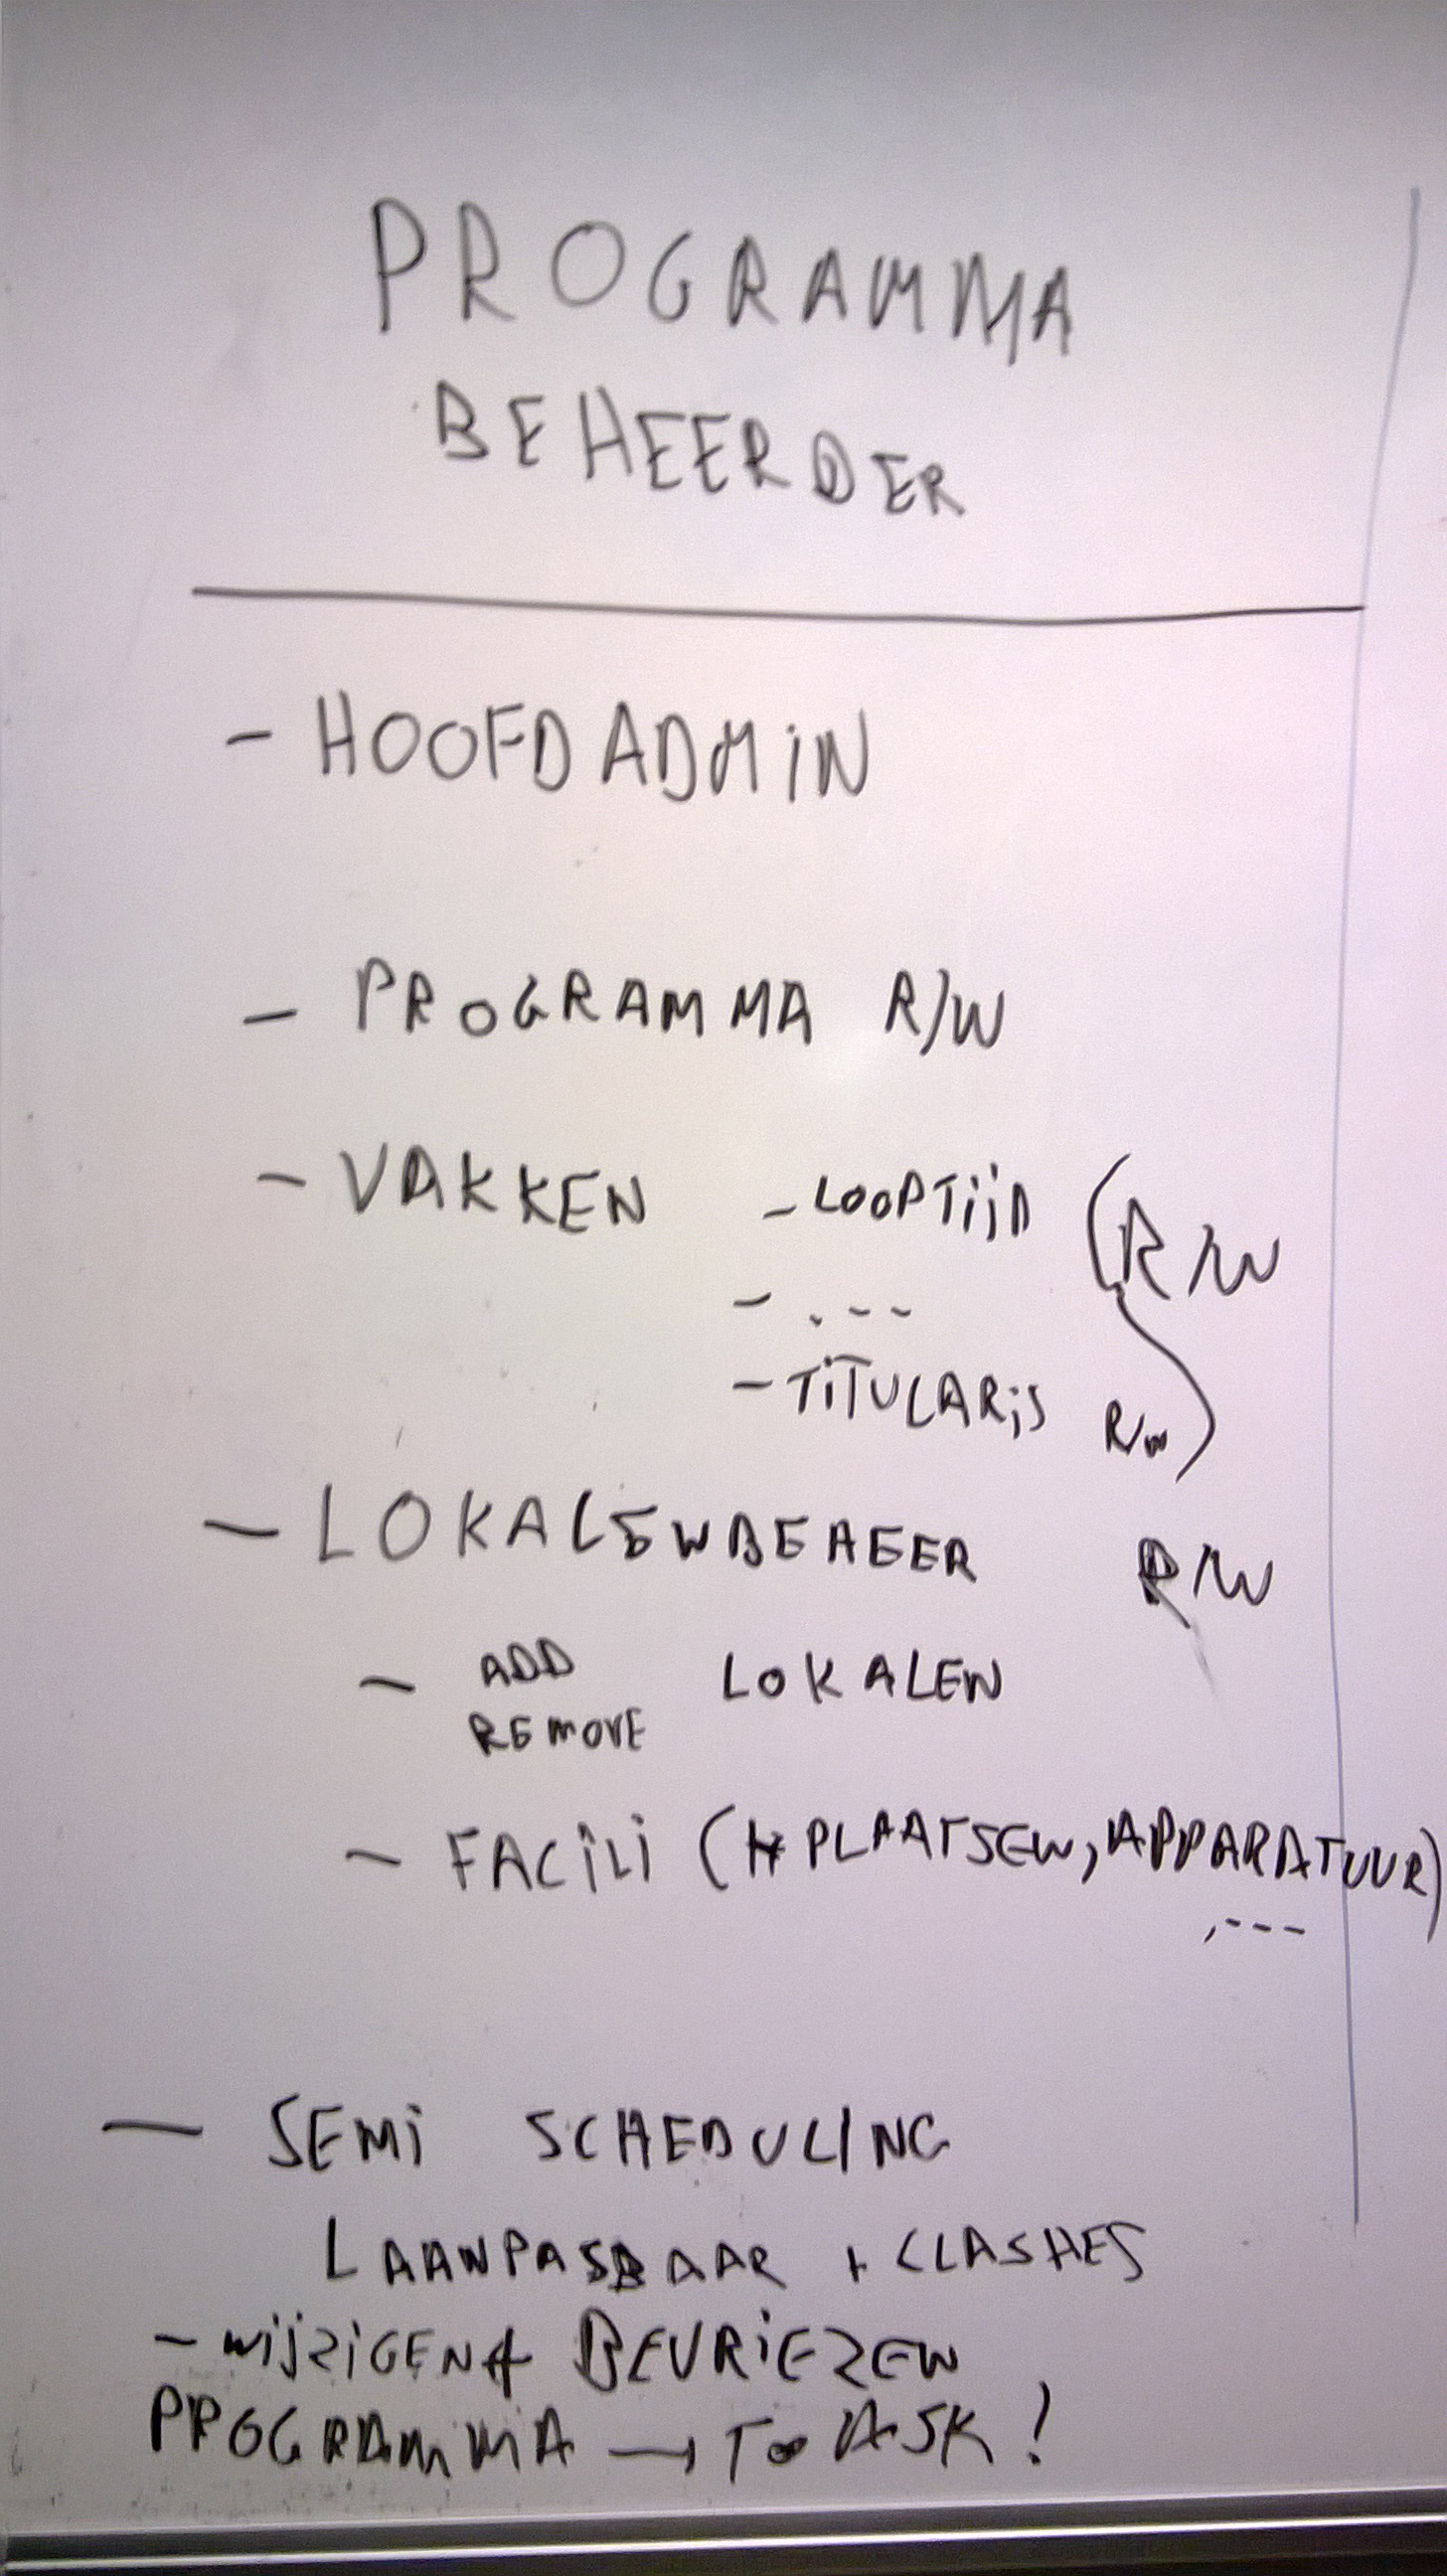 PROGRAMMA
BEHEERDER
- HOOFDADMIN
- PROGRAMMA R/W
- VAKKEN - LOOPTIJD (R/W
- ...
- TITULARIS R/W)
- LOKALENBEHEER R/W
- ADD LOKALEN
REMOVE
- FACILI (# PLAATSEN, APPARATUUR)
, ---
- SEMI SCHEDULING
L AANPASBAAR + CLASHES
- WIJZIGEN + BEVRIEZEN
PROGRAMMA → TO ASK!